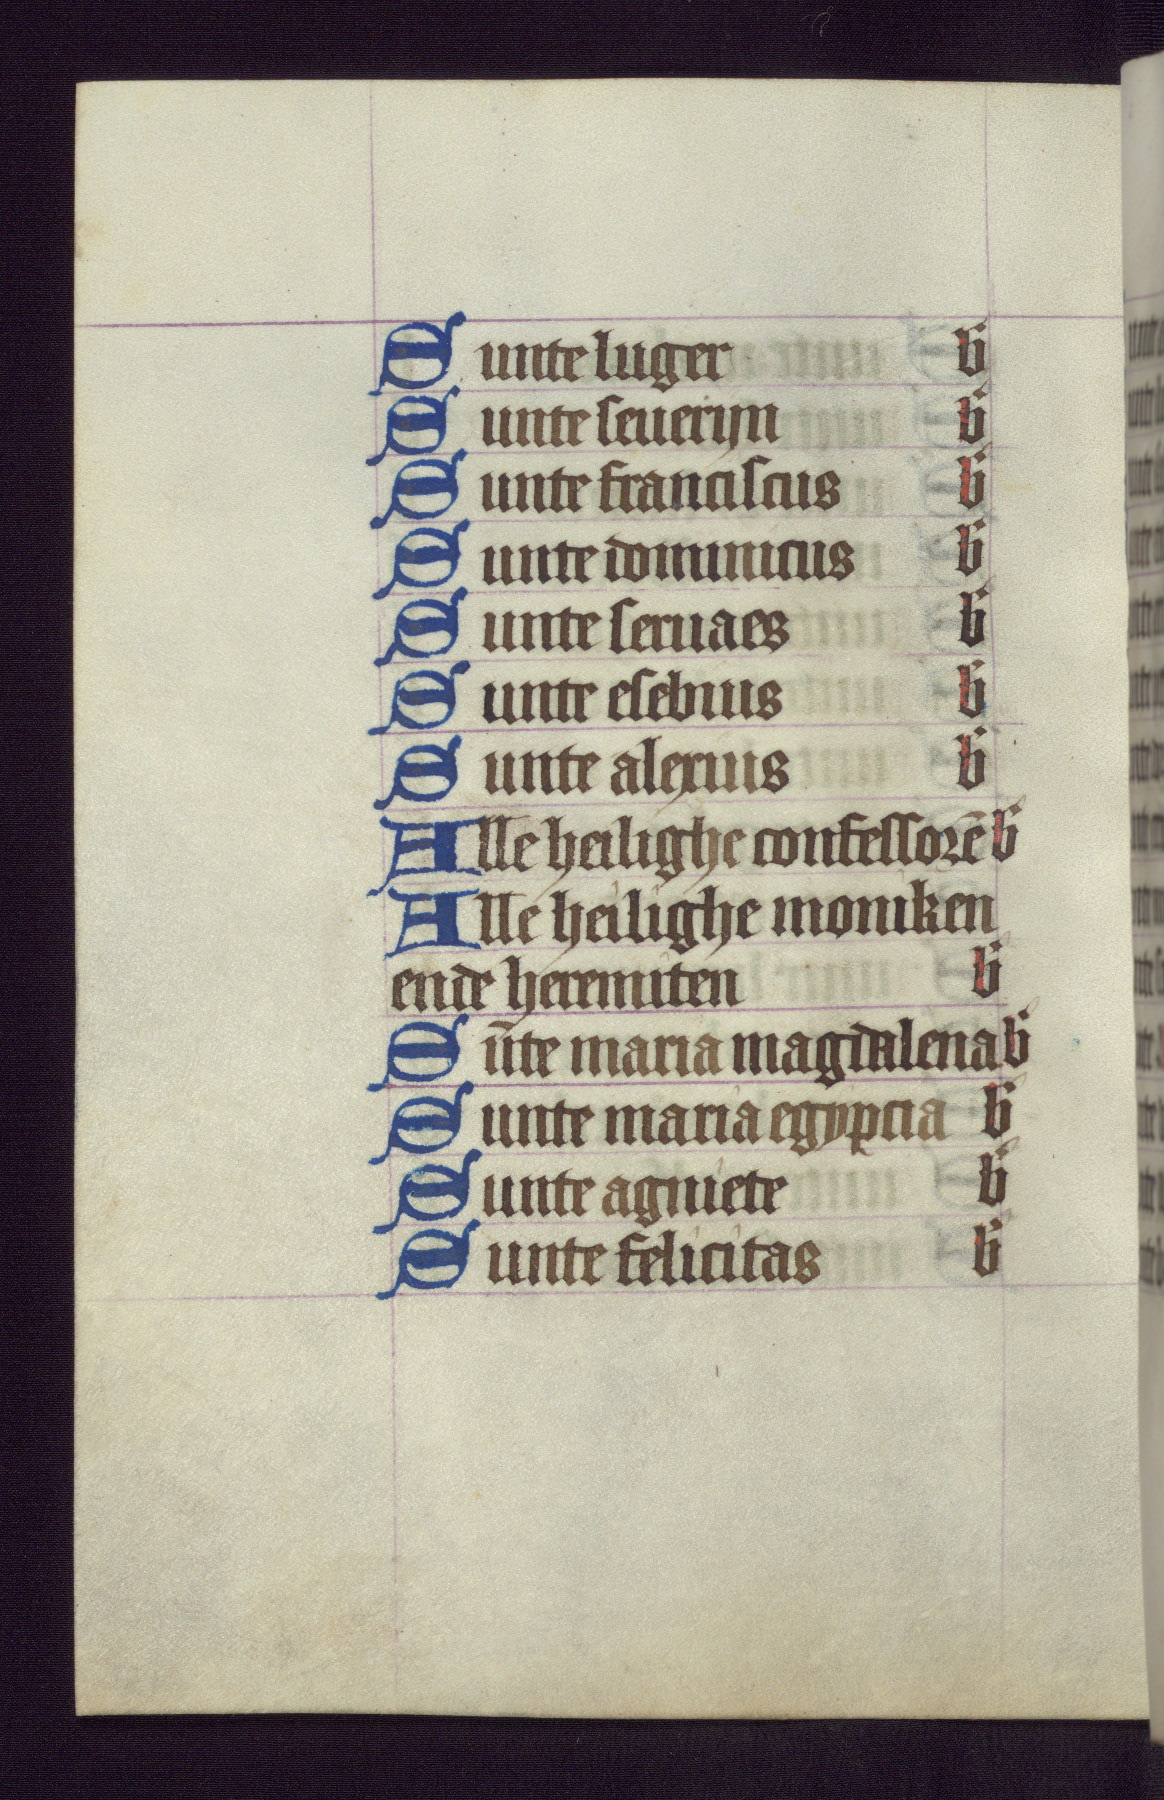 Sunte luger b
Sunte seuerijn b
Sunte franciscus b
Sunte dominicus b
Sunte seruaes b
Sunte esebius b
Sunte alexius b
Alle heilighe confessorē b
Alle heilighe moniken
ende heremiten b
Sūte maria magdalena b
Sunte maria egypcia b
Sunte agniete b
Sunte felicitas b